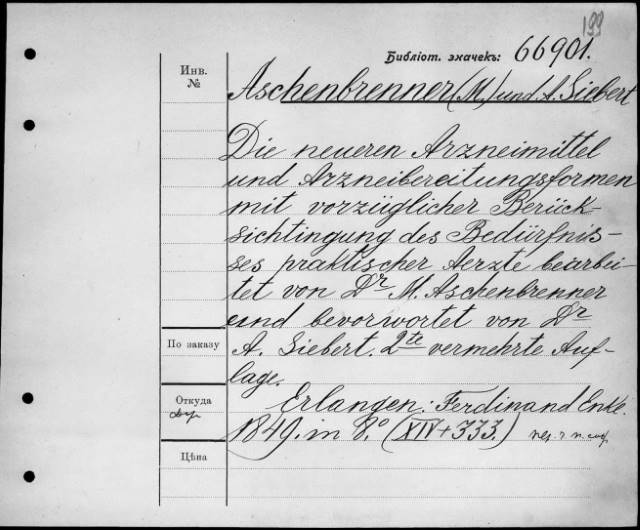 199
Библіот. значекъ: 66901.
Инв.
№
Aschenbrenner (M.) und A. Siebert
Die neueren Arzneimittel
und Arzneibereitungsformen
mit vorzüglicher Berück-
sichtingung des Bedürfnis-
ses praktischer Aerzte bearbei-
tet von Dr M. Aschenbrenner
und bevorwortet von Dr
По заказу
A. Siebert. 2te vermehrte Auf-
lage.
Откуда
Erlangen: Ferdinand Enke.
1849. in 8.° (XIV+333.)
Цѣна